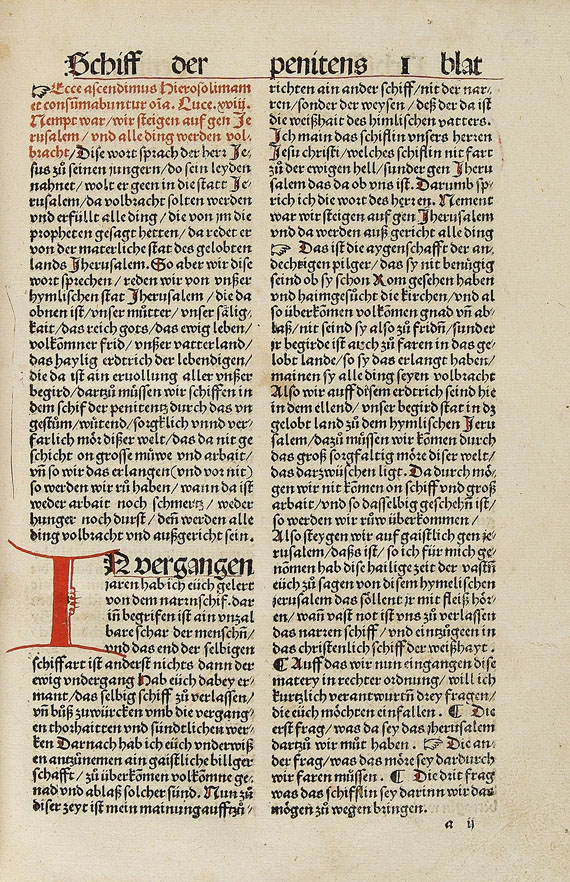 Schiff der penitens I blat
☞ Ecce ascendimus Hierosolimam
et consūmabuntur oīa. Luce. xviij.
Nempt war/wir steigen auf gen Je⸗
rusalem/vnd alle ding werden vol⸗
bracht/Dise wort sprach der herr Je⸗
sus zů seinen jungern/do sein leyden
nahnet/wolt er geen in die statt Je⸗
rusalem/da volbracht solten werden
vnd erfüllt alle ding/die von jm die
propheten gesagt hetten/da redet er
von der materliche stat des gelobten
lands Jherusalem. So aber wir dise
wort sprechen/reden wir von vnßer
hymlischen stat Jherusalem/die da
obnen ist/vnser můtter/vnser sälig⸗
kait/das reich gots/das ewig leben/
volkōmner frid/vnßer vatterland/
das haylig erdtrich der lebendigen/
die da ist ain eruollung aller vnßer
begird/dartzů müssen wir schiffen in
dem schif der penitentz durch das vn
gestüm/wůtend/sorgklich vnnd ver⸗
farlich mör dißer welt/das da nit ge
schicht on grosse müwe vnd arbait/
vn̄ so wir das erlangen (vnd vor nit)
so werden wir rů haben/wann da ist
weder arbait noch schmertz/weder
hunger noch durst/den̄ werden alle
ding volbracht vnd außgericht sein.
IN vergangen
jaren hab ich eüch gelert
von dem narrnschif. dar
in̄ begrifen ist ain vnzal
bare schar der menschn̄/
vnd das end der selbigen
schiffart ist anderst nichts dann der
ewig vndergang hab eüch dabey er⸗
mant/das selbig schiff zů verlassen/
vn̄ bůß zů würcken vmb die vergang⸗
en thorhaitten vnd sündtlichen wer⸗
ken Darnach hab ich eüch vnderwiß
en antzūnemen ain gaistliche billger
schafft/zů überkōmen volkōmne ge⸗
nad vnd ablaß solcher sünd. Nun zů
diser zeyt ist mein mainung aufftzů⸗
richten ain ander schiff/nit der nar⸗
ren/sonder der weysen/deß der da ist
die weißhait des himlischen vatters.
Ich main das schiflin vnsers herren
Jesu christi/welches schiflin nit fart
zů der ewigen hell/sunder gen Jheru
salem das da ob vns ist. Darumb sp⸗
rich ich die wort des herren. Nement
war wir steigen auf gen Jherusalem
vnd da werden auß gericht alle ding
☞ Das ist die aygenschafft der an⸗
dechtigen pilger/das sy nit benügig
seind ob sy schon Rom gesehen haben
vnd haimgesůcht die kirchen/vnd al
so überkōmen volkōmen gnad vn̄ ab⸗
laß/nit seind sy also zů fridn̄/sunder
jr begirde ist auch zů faren in das ge⸗
lobt lande/so sy das erlangt haben/
mainen sy alle ding seyen volbracht
Also wir auff disem erdtrich seind hie
in dem ellend/vnser begird stat in dz
gelobt land zů dem hymlischen Jeru
salem/dazů müssen wir kōmen durch
das groß sorgfaltig möre diser welt/
das darzwüschen ligt. Da durch mö⸗
gen wir nit kōmen on schiff vnd groß
arbait/vnd so dasselbig geschehn̄ ist/
so werden wir růw überkommen/
Also steygen wir auf gaistlich gen je⸗
rusalem/daßs ist/so ich für mich ge⸗
nōmen hab dise hailige zeit der vastn̄
eüch zů sagen von disem hymelischen
jerusalem das söllent jr mit fleiß hör⸗
en/wan̄ vast not ist vns zů verlassen
das narren schiff/vnd einzůgeen in
das christenlich schiff der weißhayt.
¶ Auff das wir nun eingangen dise
matery in rechter ordnung/will ich
kurtzlich verantwurtn̄ drey fragen/
die eüch möchten einfallen. ¶ Die
erst frag/was da sey das jherusalem
dartzů wir můt haben. ☞ Die an⸗
der frag/was das möre sey dardurch
wir faren müssen. ¶ Die drit frag
was das schiflin sey darinn wir das
mögen zů wegen bringen.
a ij